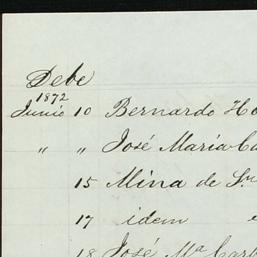 Debe
1872
Junio 10 Bernardo
" " José Maria
15 Mina de
17 idem
18 José Mª